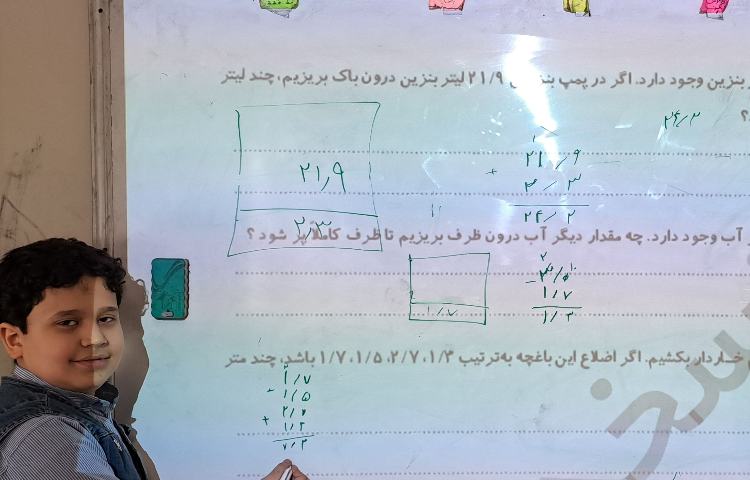 بنزین وجود دارد. اگر در پمپ بنزین ۲۱/۹ لیتر بنزین درون باک بریزیم، چند لیتر
؟
۲۴/۲
۲۱/۹
۲/۳
۱
۲۱/۹
+
۲/۳
۲۴/۲
آب وجود دارد. چه مقدار دیگر آب درون ظرف بریزیم تا ظرف کاملا پر شود ؟
۱/۷
۲ ۱۰
۳/۰
-
۱/۷
۱/۳
خاردار بکشیم. اگر اضلاع این باغچه به‌ترتیب ۱/۷،۱/۵،۲/۷،۱/۴ باشد، چند متر
۱/۷
۱/۵
۲/۷
+
۱/۴
۷/۳